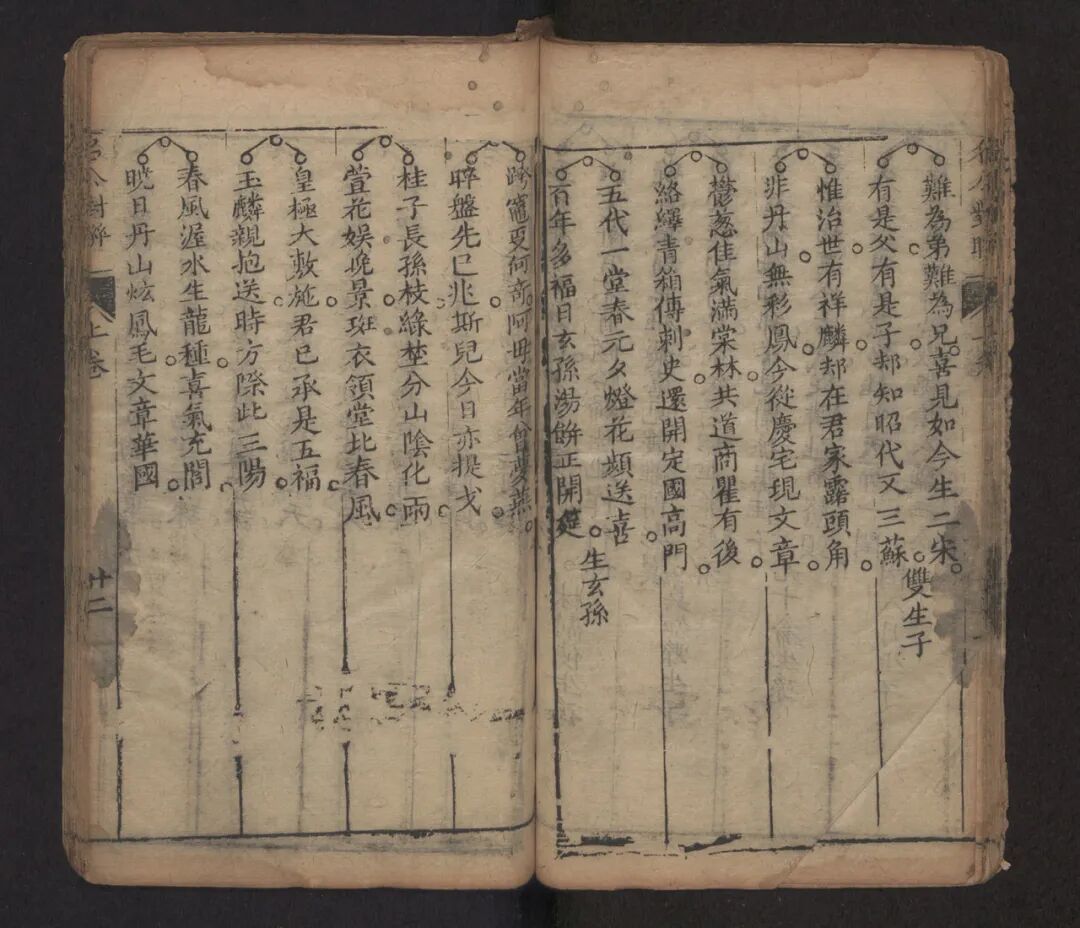 難為弟難為兄喜見如今生二宋
有是父有是子却知昭代又三蘇 雙生子
惟治世有祥麟却在君家露頭角
非丹山無彩鳳今從慶宅現文章
鬱葱佳氣滿棠林共道商瞿有後
絡繹青箱傳刺史還開定國高門
五代一堂春元夕燈花頻送喜
百年多福日玄孫湯餅正開筵 生玄孫
跨竈更何奇阿母當年曾夢燕
晬盤先已兆斯兒今日亦提戈
桂子長孫枝綠埜分山陰化雨
萱花娛晚景斑衣領堂北春風
皇極大敷施君已承是五福
玉麟親抱送時方際此三陽
春風渥水生龍種喜氣充閭
曉日丹山炫鳳毛文章華國
上卷
廿二